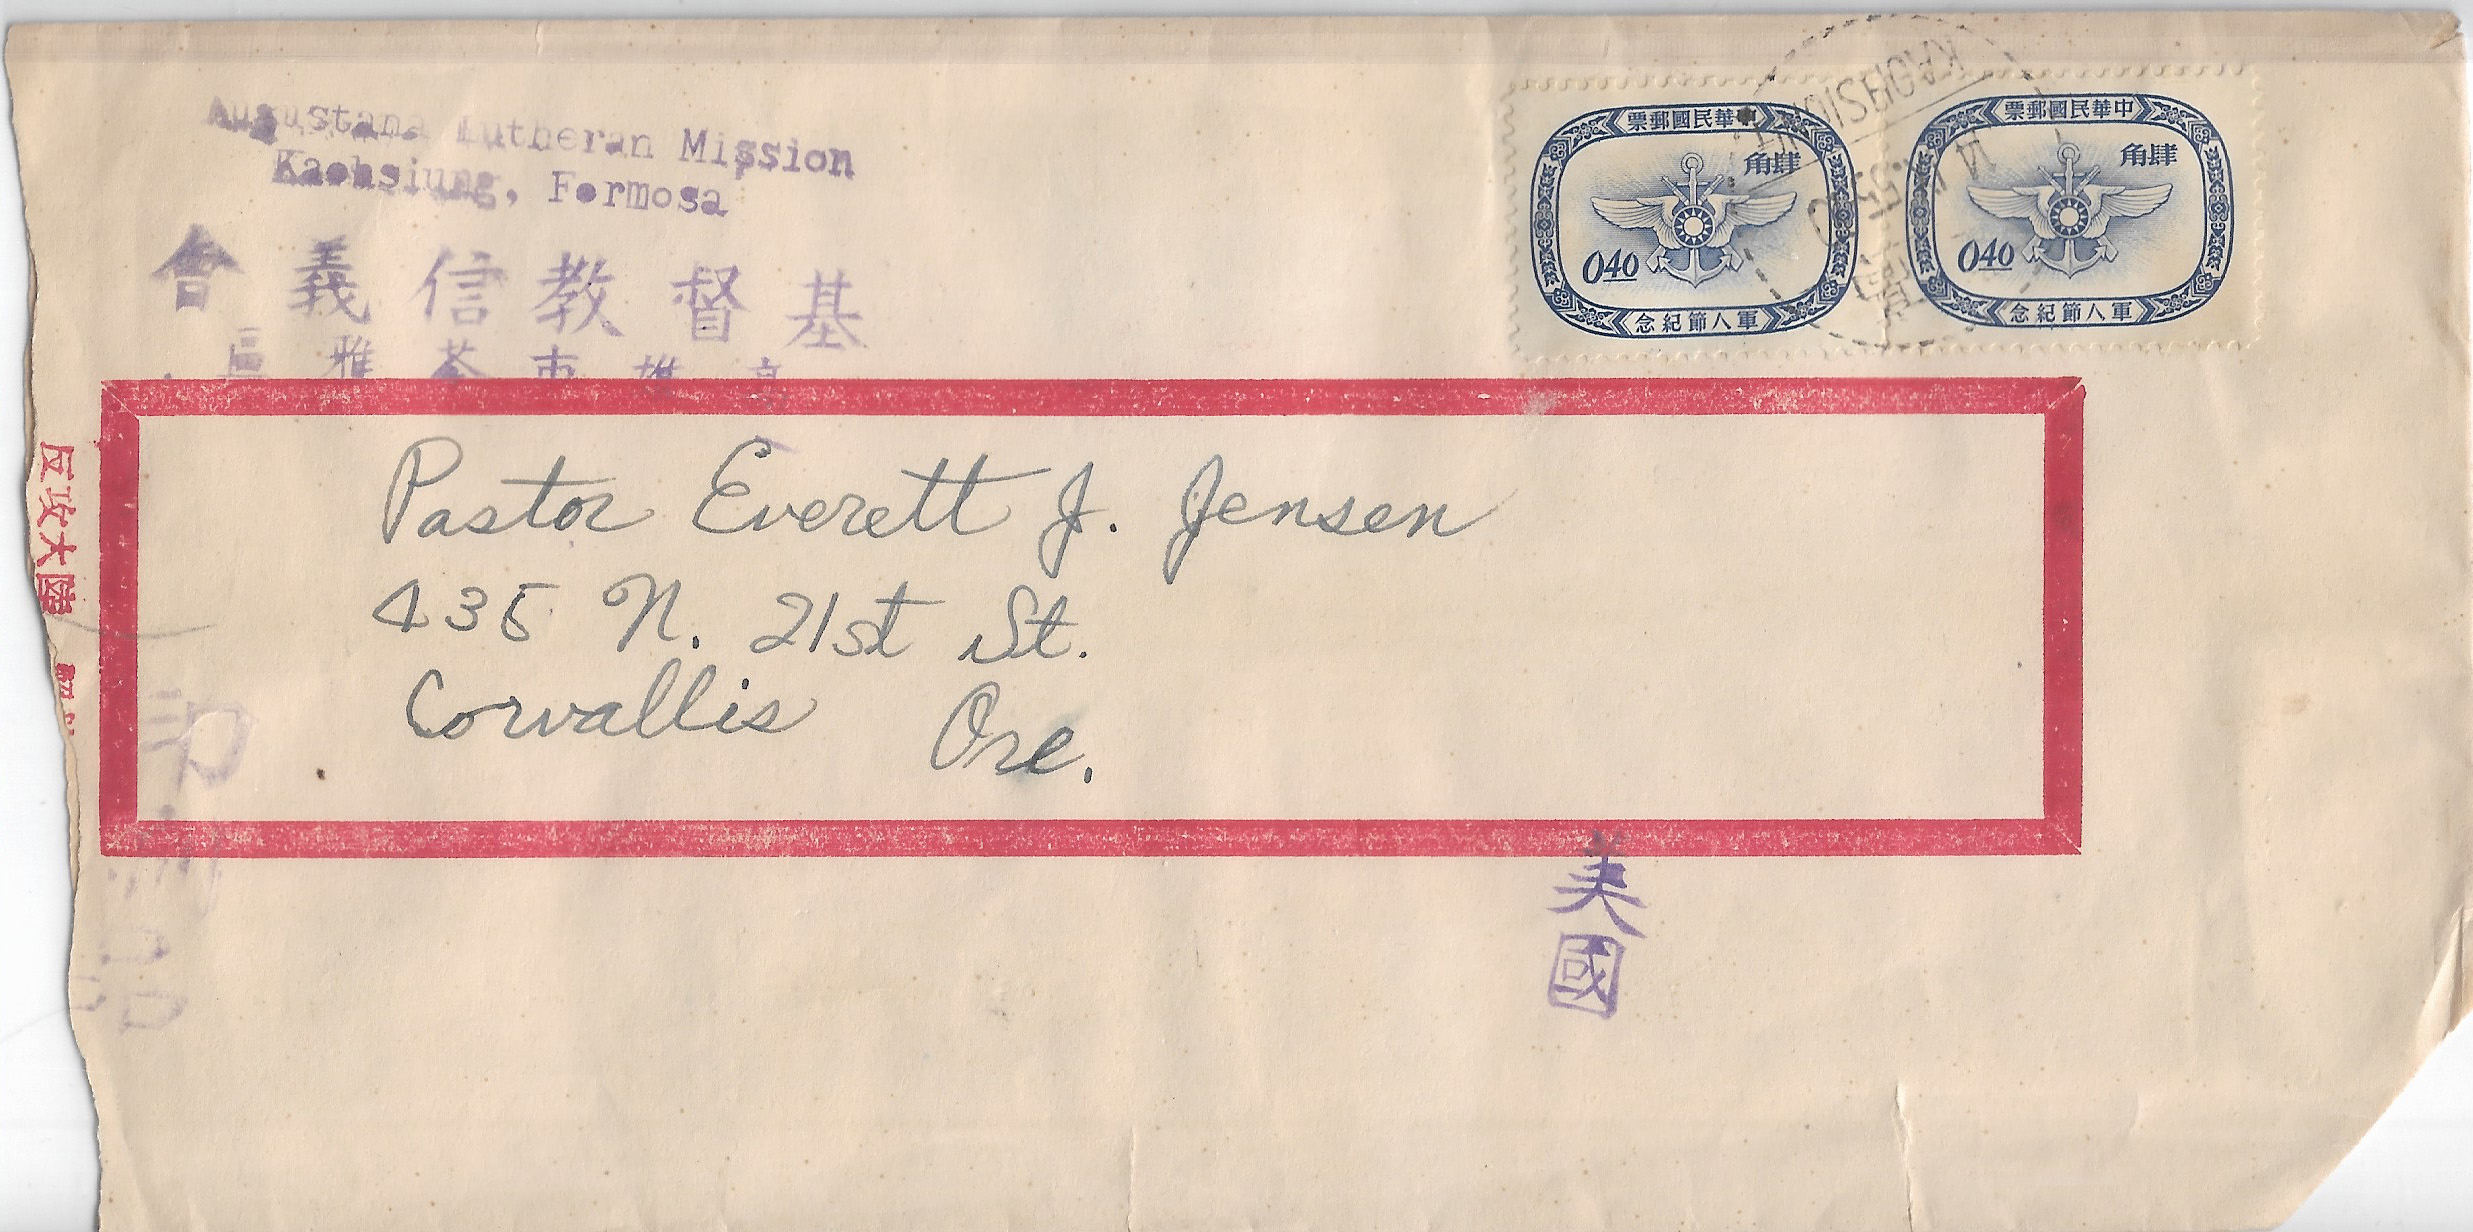 Augustana Lutheran Mission
Kaohsiung, Formosa
會義信教督基
區雅苓市雄高
中華民國郵票
肆角
0.40
軍人節紀念
中華民國郵票
肆角
0.40
軍人節紀念
KAOHSIUNG
反攻大陸
Pastor Everett J. Jensen
435 N. 21st St.
Corvallis Ore.
美國